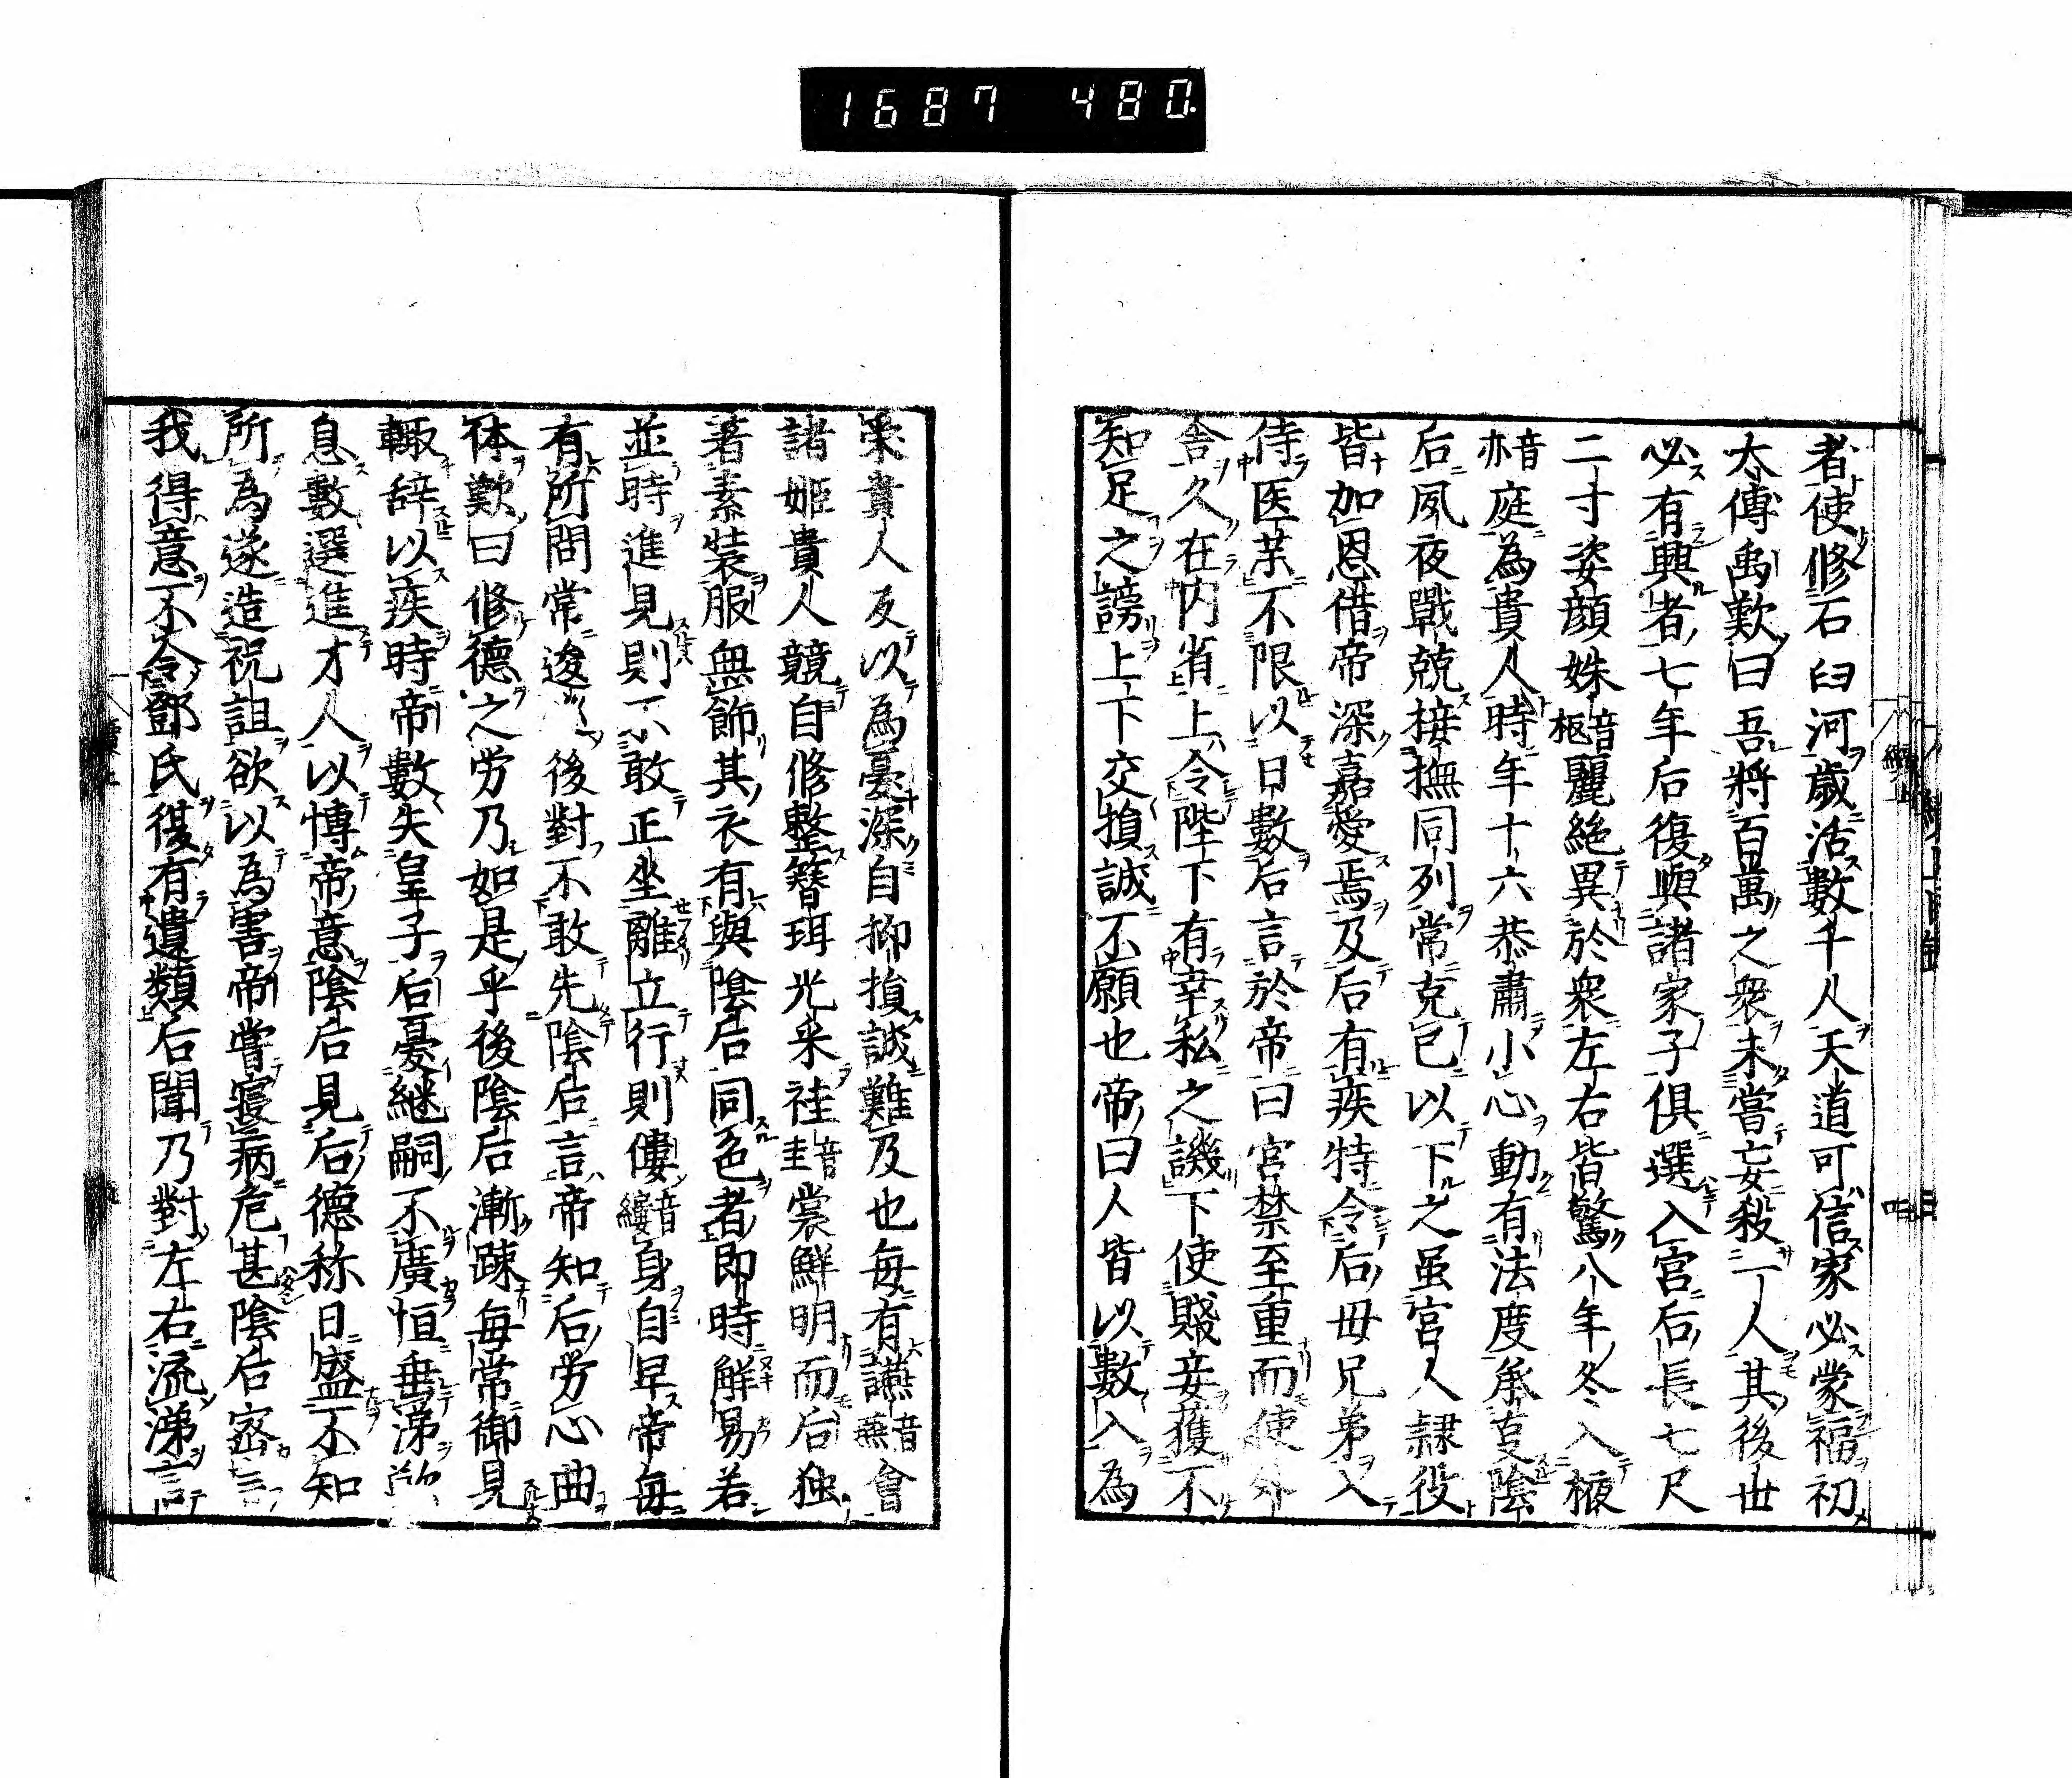 1687 480.
者使修石臼河歲活數千人天道可信家必蒙福初
太傅禹歎曰吾將百萬之衆未嘗妄殺一人其後世
必有興者七年后復與諸家子俱選入宮后長七尺
二寸姿顔姝音枢麗絶異於衆左右皆驚八年冬入掖
音亦庭為貴人時年十六恭肅小心動有法度承事陰
后夙夜戰兢接撫同列常克己以下之虽宮人隷役
皆加恩借帝深嘉愛焉及后有疾特令后母兄弟入
侍医薬不限以日數后言於帝曰宮禁至重而使外
舍久在内省上令陛下有幸私之譏下使賤妾獲不
知足之謗上下交損誠不願也帝曰人皆以數入為
栄貴人反以為憂深自抑損誠難及也毎有讌音燕會
諸姫貴人競自修整簪珥光采袿音圭裳鮮明而后独
著素装服無飾其衣有與陰后同色者即時解易若
並時進見則不敢正坐離立行則僂音縷身自卑帝毎
有所問常逡後對不敢先陰后言帝知后労心曲
体歎曰修德之労乃如是乎後陰后漸疎毎當御見
輙辞以疾時帝數失皇子后憂継嗣不廣恒垂涕
息數選進才人以博帝意陰后見后德称日盛不知
所為遂造祝詛欲以為害帝嘗寝病危甚陰后密言
我得意不令鄧氏復有遺類后聞乃對左右流涕言